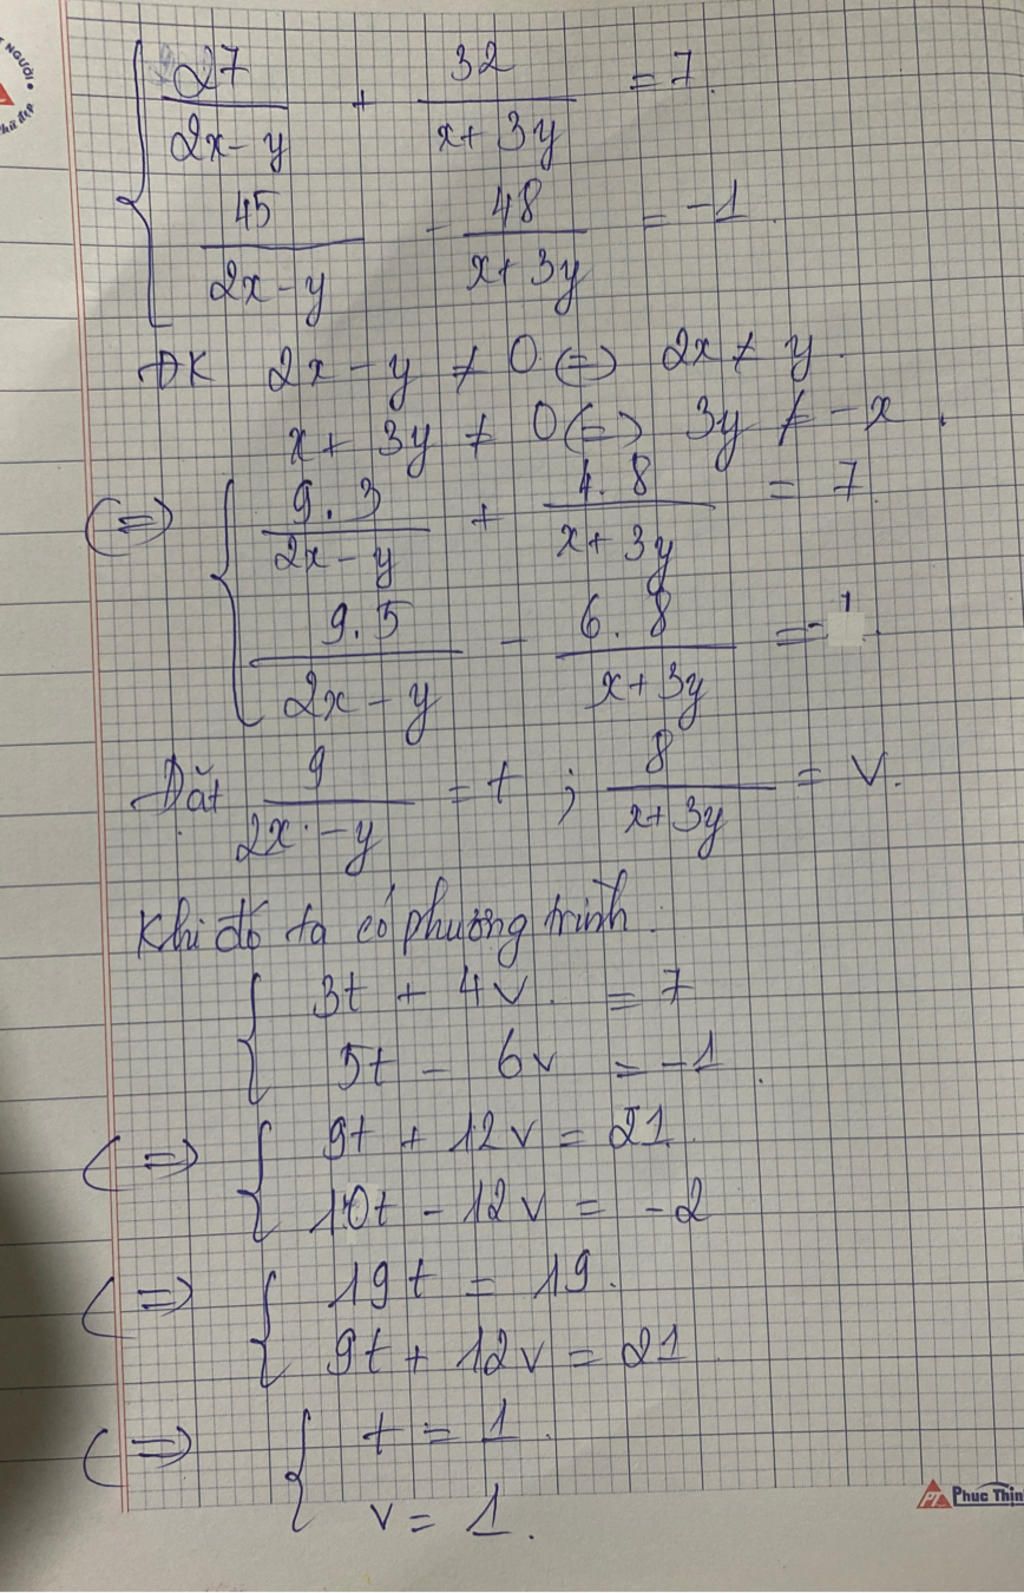 NGƯỜI
chữ đẹp
27/(2x-y) + 32/(x+3y) = 7
45/(2x-y) - 48/(x+3y) = -1
ĐK 2x - y ≠ 0 (=) 2x ≠ y
x + 3y ≠ 0 (=) 3y ≠ -x
(=) 9.3/(2x-y) + 4.8/(x+3y) = 7
9.5/(2x-y) - 6.8/(x+3y) = -1
Đặt 9/(2x-y) = t ; 8/(x+3y) = v.
Khi đó ta có phương trình
3t + 4v = 7
5t - 6v = -1
(=) 9t + 12v = 21
10t - 12v = -2
(=) 19t = 19.
9t + 12v = 21
(=) t = 1.
v = 1.
PT Phuc Thin